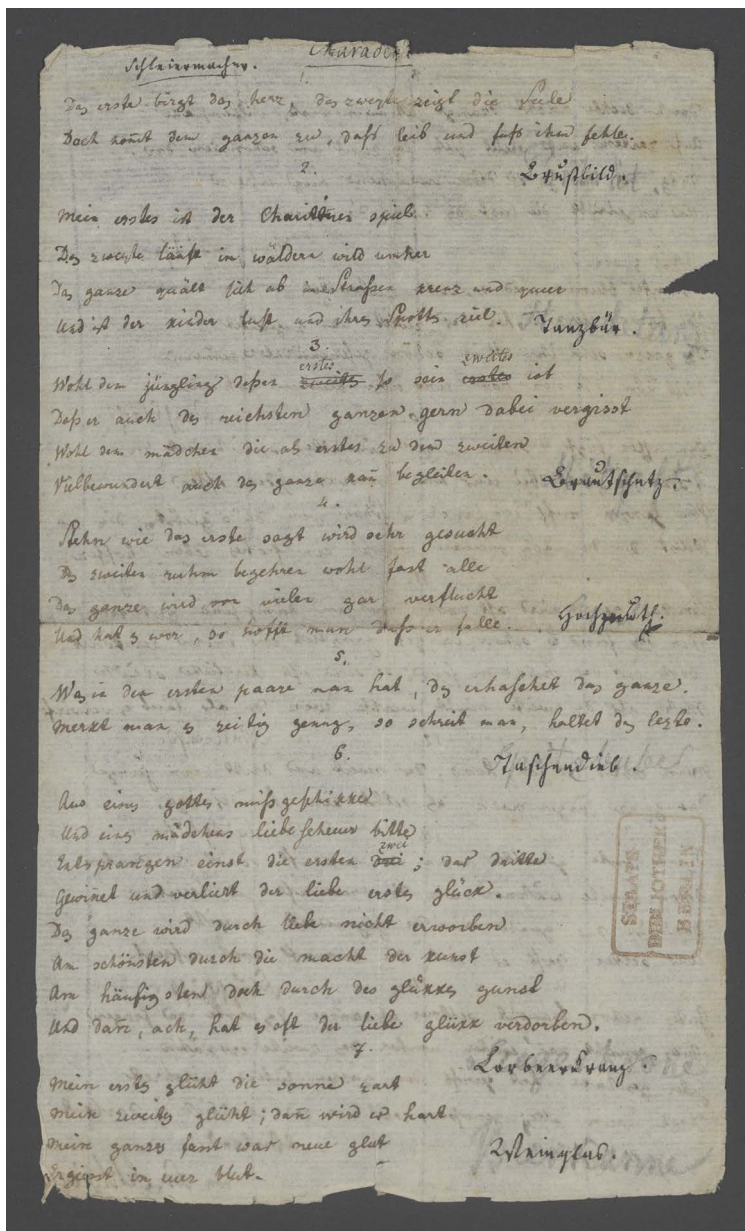 Charaden.
Schleiermacher.
1.
Das erste birgt das herz, das zweyte zeigt die Seele
Doch komt dem ganzen zu, daß leib und fuß ihm fehle.
Brustbild.
2.
Mein erstes ist der Charitinnen spiel
Das zweyte läuft in wäldern wild umher
Das ganze quält sich ab in Straßen kreuz und queer
Und ist der kinder lust und ihres Spotts ziel.
Tanzbär.
3.
Wohl dem jüngling deßen zweites erstes so sein erstes zweites ist
Daß er auch des reichsten ganzen gern dabei vergisst
Wohl dem mädchen die als erstes zu dem zweiten
Vielbewundert auch das ganze kañ begleiten.
Brautschatz.
4.
Stehn wie das erste sagt wird sehr gesucht
Des zweiten ruhm begehren wohl fast alle
Das ganze wird von vielen gar verflucht
Und hat es wer, so hofft man daß er falle.
Hochmuth.
5.
Was in den ersten paare man hat, das erhaschet das ganze.
Merkt man es zeitig genug, so schreit man, haltet das lezte.
Taschendieb.
6.
Aus eines gottes mißgeschikke
Und eines mädchens liebescheuer bitte
Entsprangen einst die ersten drei zwei; das dritte
Gewinnt und verliert der liebe erstes glück.
Das ganze wird durch liebe nicht erworben
Am schönsten durch die macht der kunst
Am häufigsten doch durch des glükkes gunst
Und dañ, ach, hat es oft der liebe glükk verdorben.
Lorbeerkranz.
7.
Mein erstes glüht die sonne zart
Mein zweites glüht; dañ wird es hart
Mein ganzes fasst was neue glut
Ergiesst in euer blut.
Weinglas.
STAATS
BIBLIOTHEK
BERLIN